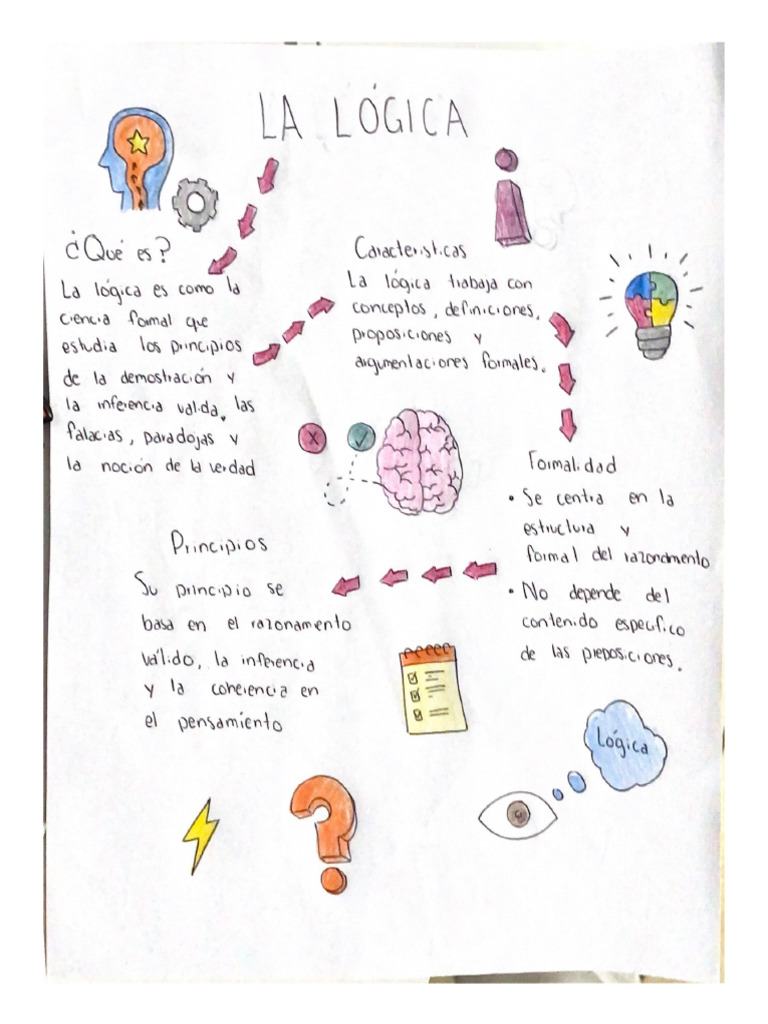 LA LÓGICA
¿Qué es?
La lógica es como la
ciencia formal que
estudia los principios
de la demostración y
la inferencia valida, las
falacias, paradojas y
la noción de la verdad
Caracteristicas
La lógica trabaja con
conceptos, definiciones,
proposiciones y
argumentaciones formales.
Formalidad
• Se centra en la
estructura y
formal del razonamento
• No depende del
contenido especifico
de las preposiciones.
Principios
Su principio se
basa en el razonamento
válido, la inferencia
y la coherencia en
el pensamiento
Lógica